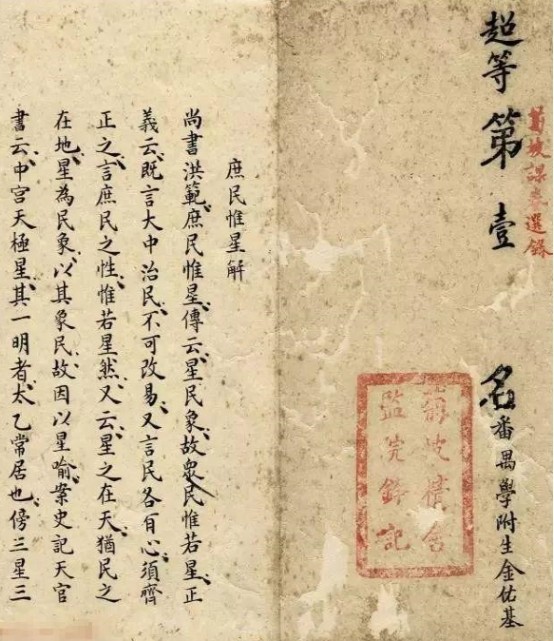 菊坡課卷選錄
超等第壹名番禺學附生金佑基
菊坡精舍
監院鈐記
庶民惟星解
尚書洪範庶民惟星傳云星民象故眾民惟若星正
義云既言大中治民不可改易又言民各有心須齊
正之言庶民之性惟若星然又云星之在天猶民之
在地星為民象以其象民故因以星喻案史記天官
書云中宮天極星其一明者太乙常居也傍三星三